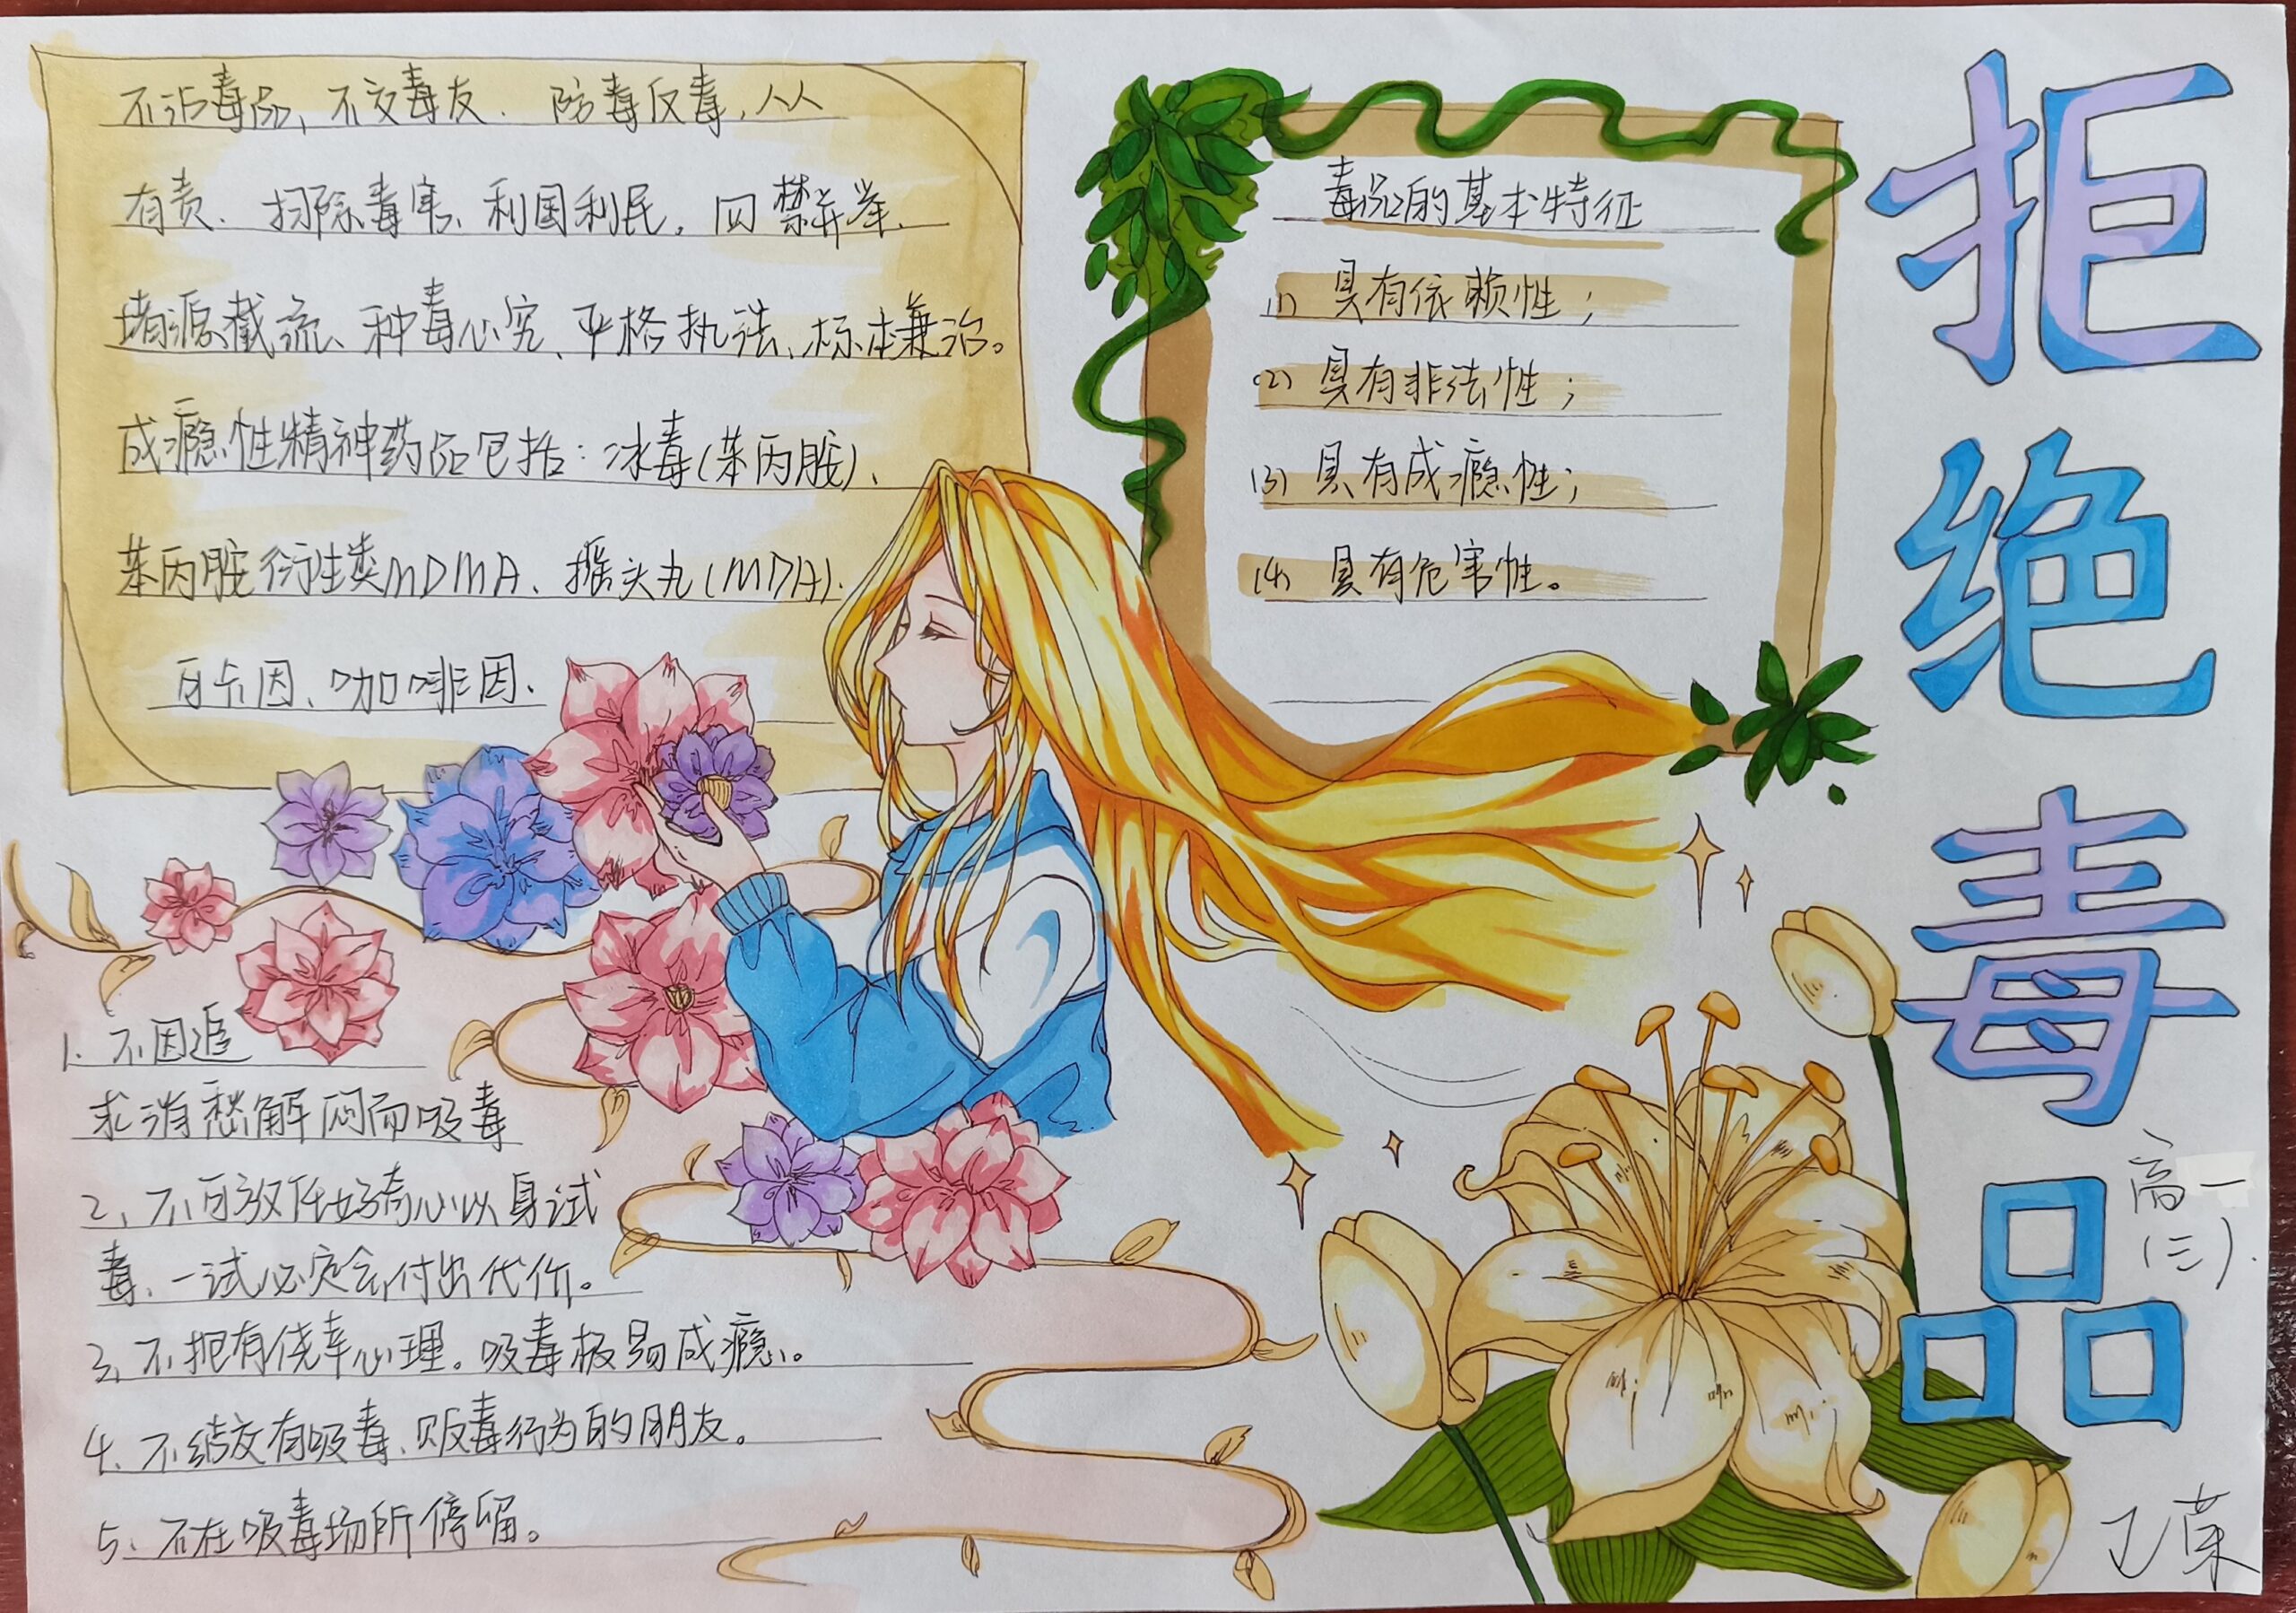 不沾毒品、不交毒友. 防毒反毒,人人
有责、扫除毒害、利国利民。四禁并举、
堵源截流、种毒必究、严格执法、标本兼治。
成瘾性精神药品包括:冰毒(苯丙胺)、
苯丙胺衍生类MDMA、摇头丸(MDA).
可卡因、咖啡因.
毒品的基本特征
(1) 具有依赖性;
(2) 具有非法性;
(3) 具有成瘾性;
(4) 具有危害性。
拒绝毒品
高一
(三).
1、不因追
求消愁解闷而吸毒
2、不可放任好奇心以身试
毒、一试必定会付出代价。
3、不抱有侥幸心理。吸毒极易成瘾。
4、不结交有吸毒、贩毒行为的朋友。
5、不在吸毒场所停留。